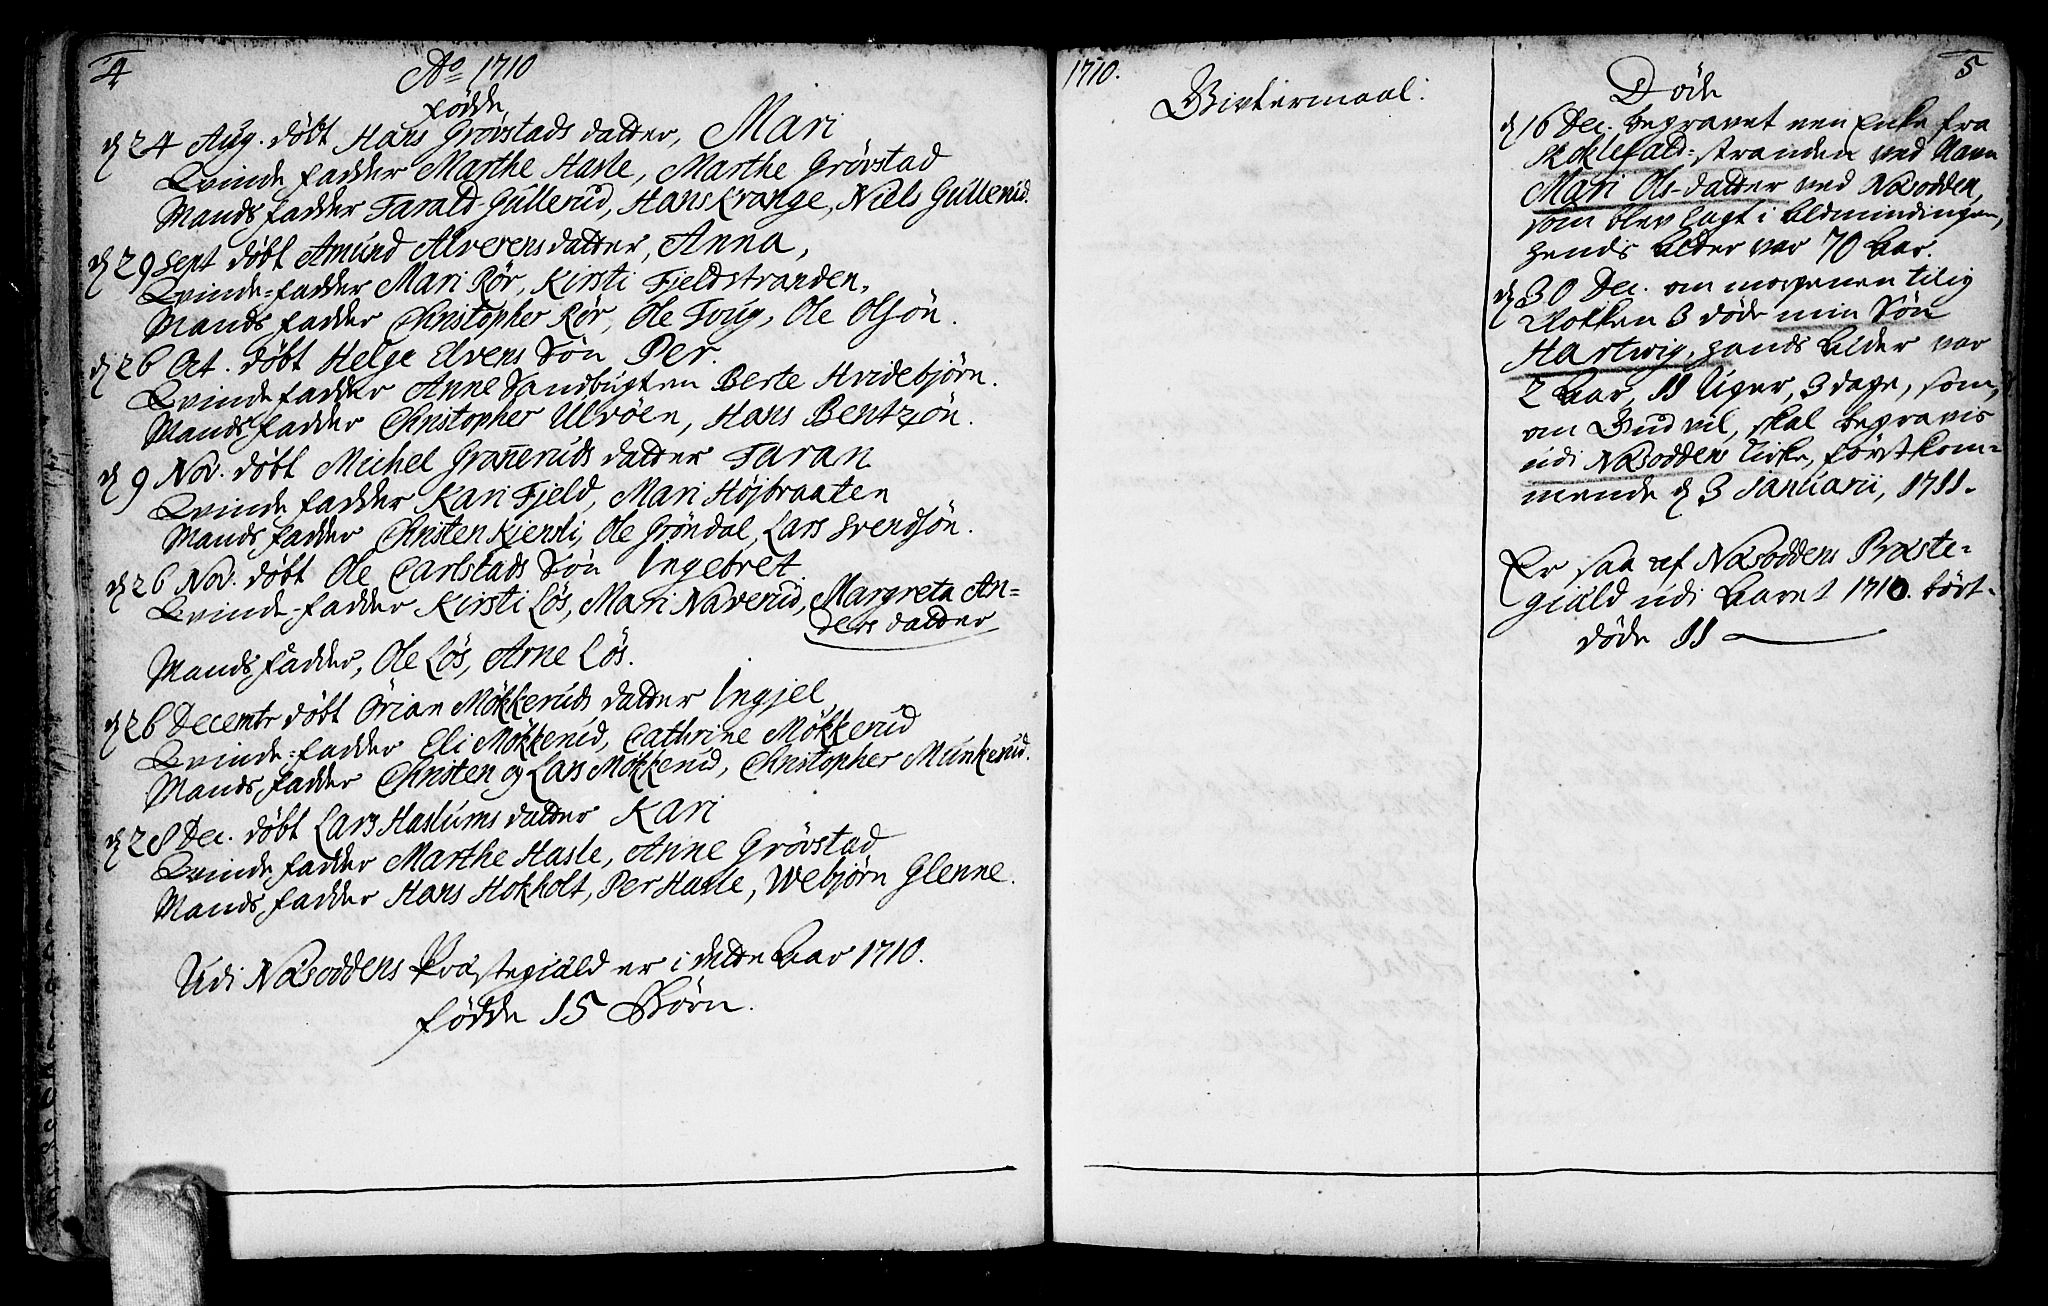 4
Ao 1710
fødde
d 24 Aug. døbt Hans Grøvstads datter, Mari
Qvinde fadder Marthe Hasle, Marthe Grøvstad
Mands fadder Tarald Gullerud, Hans Krange, Niels Gullerud.
d 29 Sept døbt Amund Alverens datter, Anna,
Qvinde=fadder Mari Rør, Kirsti Fjeldstranden,
Mands fadder Christopher Rør, Ole Toug, Ole Olsøn.
d 26 Oct. døbt Helge Elvens Søn Per.
Qvinde fadder Anne Sandbugten Berte Hvidebjørn.
Mands fadder Christopher Ulvøen, Hans Bentzøn.
d 9 Nov. døbt Michel Granneruds datter Taran
Qvinde fadder Kari Fjeld, Mari Højbraaten
Mands fadder Christen Kiensli, Ole Grøndal, Lars Svendsøn.
d 26 Nov. døbt Ole Carlstads Søn Ingebret
Qvinde-fadder Kirsti Løs, Mari Naverud, Margreta An=
ders datter
Mands fadder, Ole Løs, Arne Løs.
d 26 Decembr døbt Ørian Møkkeruds datter Ingjel
Qvinde=fadder Eli Møkkerud, Cathrine Møkkerud
Mands fadder Christen og Lars Møkkerud, Christopher Munkerud.
d 28 Dec. døbt Lars Haslums datter Kari
Qvinde fadder Marthe Hasle, Anne Grøvstad
Mands fadder Hans Hokholt, Per Hasle, Webjørn Glenne.
Udi Næsoddens Præstegiæld er i dette Aar 1710.
fødde 15 Børn.
1710.
Givtermaal:
5
Døde
d 16 Dec. begravet een Enke fra
Skoklefald=stranden ved Navn
Mari Ols-datter ved Næsodden,
som blev lagt i Almindingen,
hendis Alder var 70 Aar.
d 30 Dec. om morgenen tilig
Klokken 3 døde min Søn
Hartwig, hands Alder var
2 Aar, 11 Uger, 3 dage, som,
om Gud vil, skal begravis
udi Næsoddens Kirke, førstkom=
mende d 3 Januarii, 1711.
Er saa af Næsoddens Præste=
giæld udi Aaret 1710. bort-
døde 11